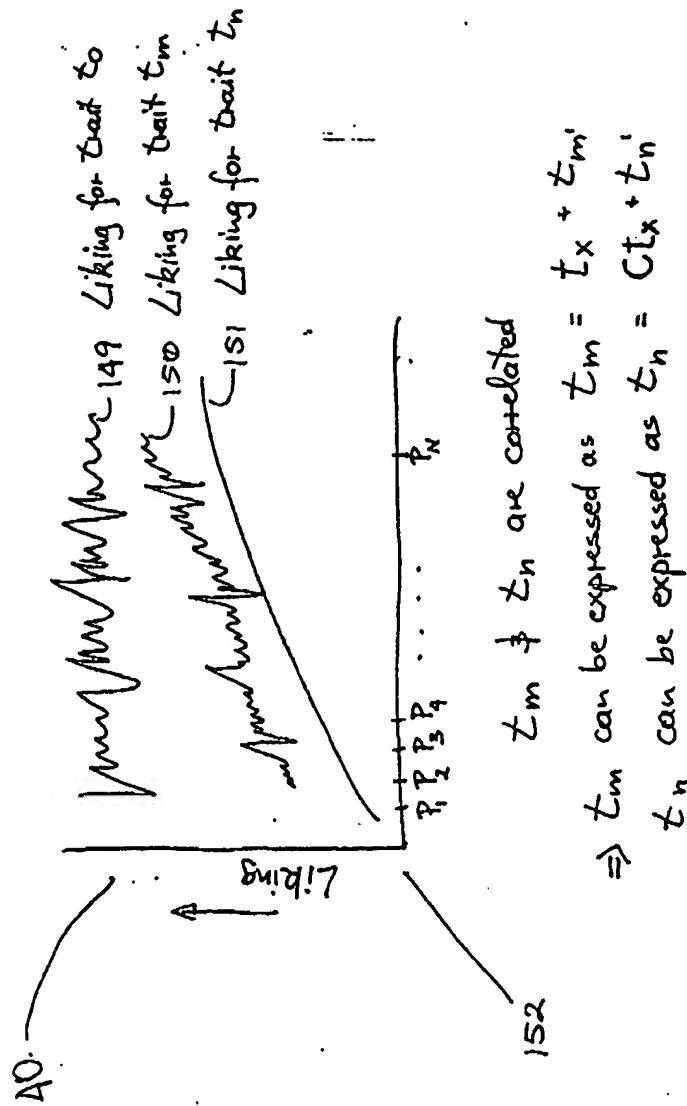 40
149 Liking for trait t₀
150 Liking for trait tₘ
151 Liking for trait tₙ
Liking
P₁ P₂ P₃ P₄ . . . . Pɴ
152
tₘ & tₙ are correlated
⇒ tₘ can be expressed as tₘ = tₓ + tₘ'
tₙ can be expressed as tₙ = Ctₓ + tₙ'